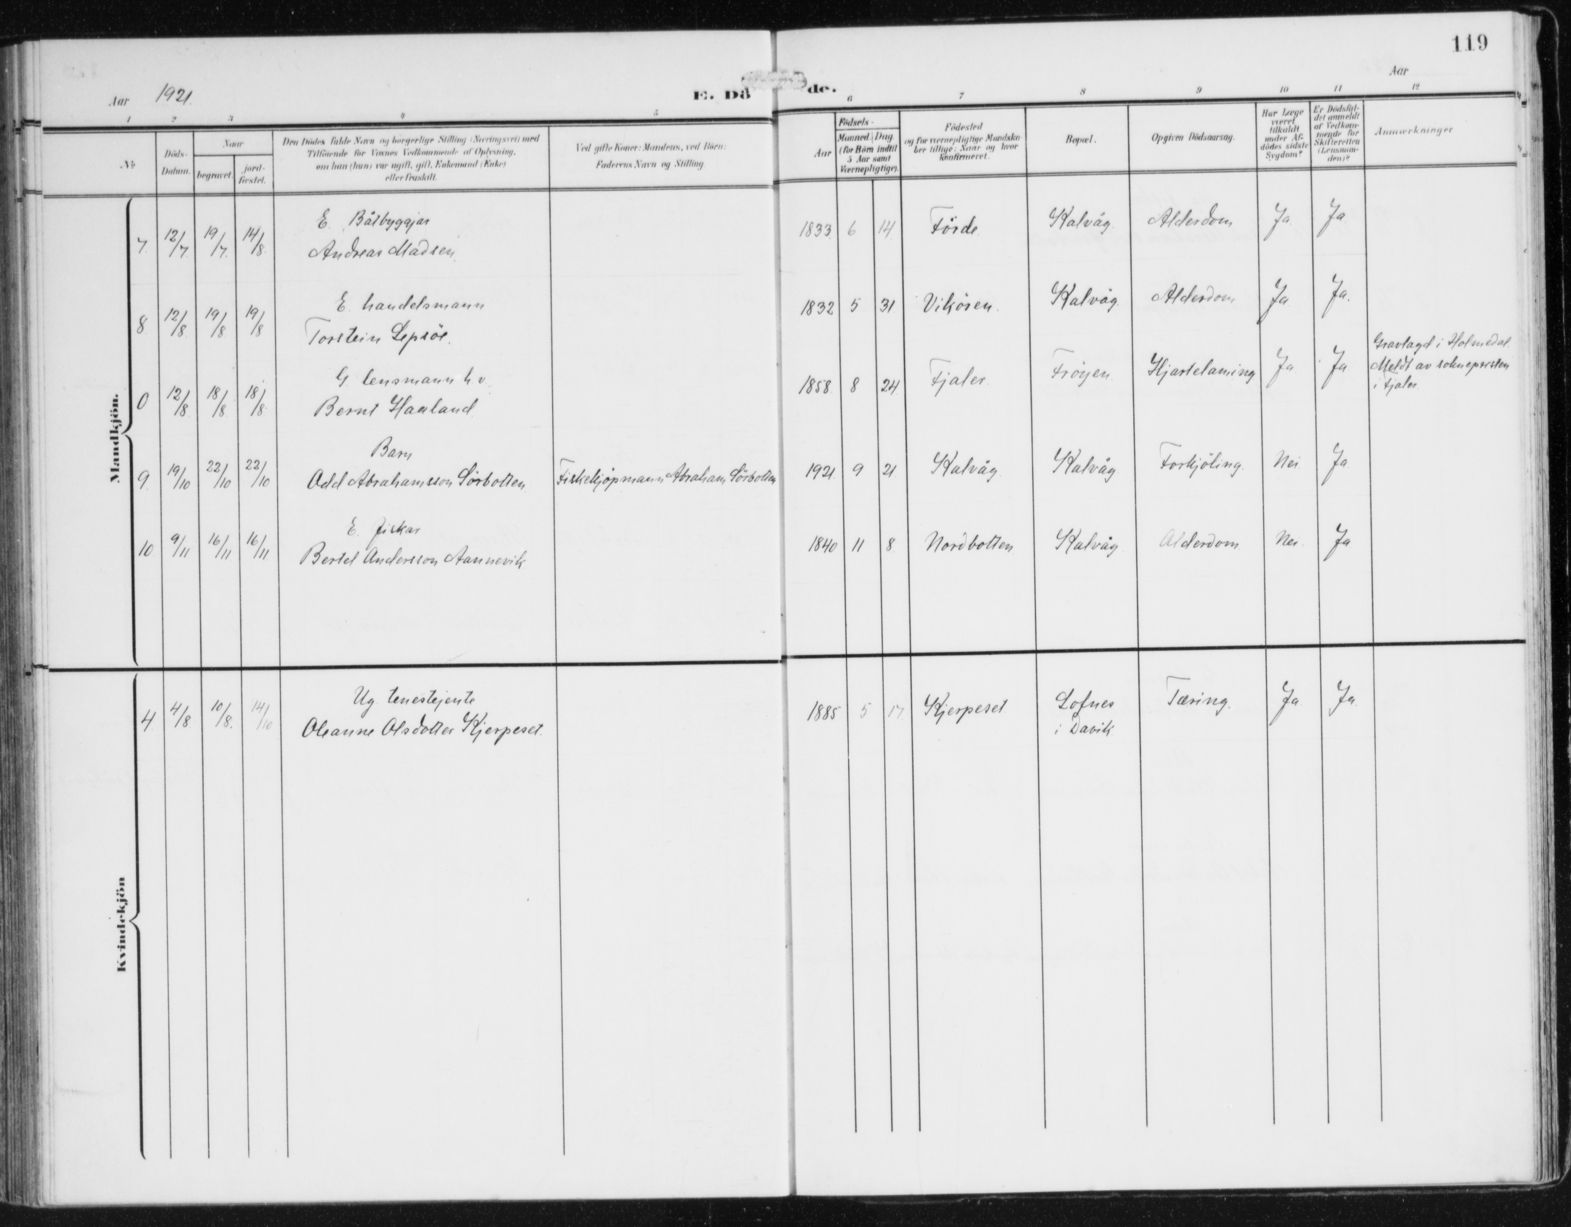 119
Aar 1921.
E. Dö de.
Aar
1 2 3 4 5 6 7 8 9 10 11 12
№
Döds-
Datum.
Naar
begravet.
jord-
fæstet.
Den Dödes fulde Navn og borgerlige Stilling (Næringsvei) med
Tilföiende for Voxnes Vedkommende af Oplysning,
om han (hun) var ugift, gift, Enkemand (Enke)
eller fraskilt.
Ved gifte Koner: Mandens, ved Börn:
Faderens Navn og Stilling.
Födsels-
Aar
Maaned. Dag
(for Börn indtil
5 Aar samt
Værnepligtige).
Födested
og for værnepligtige Mandskaber tillige: Naar og hvor
Konfirmeret.
Bopæl.
Opgiven Dödsaarsag.
Har Læge
været
tilkaldt
under Af-
dödes sidste
Sygdom?
Er Dödsfal-
det anmeldt
af Vedkom-
mende for
Skifteretten
(Lensman-
den)?
Anmærkninger
Mandkjön.
E. Båtbyggjar
7. 12/7. 19/7. 14/8 Andreas Madsen. 1833 6 14 Förde Kalvåg. Alderdom Ja Ja
E. handelsmann
8 12/8. 19/8 19/8 Torstein Lepsöe. 1832 5 31 Vikören. Kalvåg Alderdom Ja Ja.
G. lensmann h.v.
0 12/8 18/8 18/8 Bernt Haaland 1858 8 24 Fjaler Fröyen Hjartelaming Ja Ja
Gravlagd i Holmedal
Meldt av soknepresten
i Fjaler
Barn
9. 19/10 22/10 22/10 Odd Abrahamsson Sörbotten Fiskekjöpmann Abraham Sörbotten 1921 9 21 Kalvåg Kalvåg Forkjöling. Nei Ja
E. fiskar
10 9/11 16/11 16/11 Bertel Andersson Aannevik 1840 11 8 Nordbotten Kalvåg Alderdom Nei Ja
Kvindekjön
Ug. tenestejente
4 4/8 10/8. 14/10 Oleanne Olsdotter Kjerpeset 1885 5 17 Kjerpeset Lofnes
i Davik
Tæring. Ja Ja